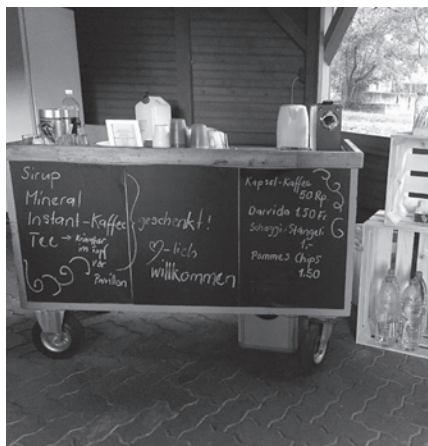 Sirup
Mineral
Instant-Kaffee
Tee → Kräuter
im Topf
vor
Pavillon
geschenkt!
♡-lich
willkommen
Kapsel-Kaffee
50 Rp.
Darvida 1.50 Fr.
Schoggi-Stängeli
1.-
Pommes Chips
1.50